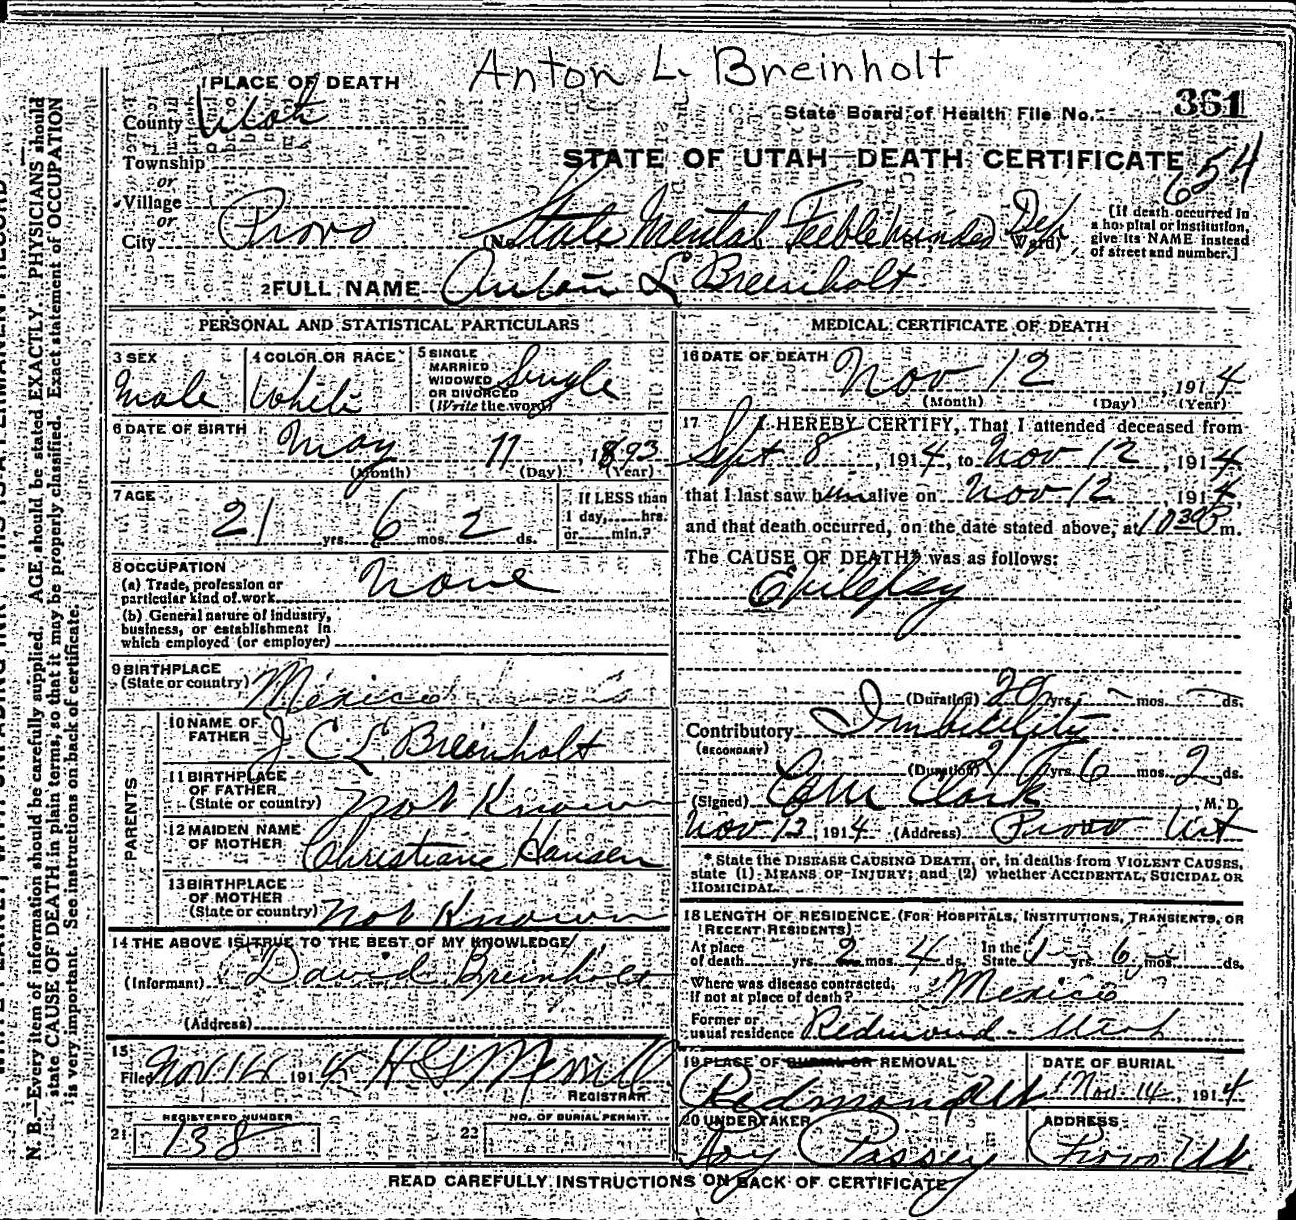 Anton L. Breinholt
1 PLACE OF DEATH
State Board of Health File No. 361
County Utah
STATE OF UTAH—DEATH CERTIFICATE
654
Township
or
Village
or
City Provo
(No. State Mental Feebleminded Dep Ward)
(If death occurred in
a hospital or institution,
give its NAME instead
of street and number.]
2 FULL NAME Anton L Breinholt
PERSONAL AND STATISTICAL PARTICULARS
3 SEX
Male
4 COLOR OR RACE
White
5 SINGLE
MARRIED
WIDOWED
OR DIVORCED
(Write the word)
Single
6 DATE OF BIRTH
May 11, 1893
(Month) (Day) (Year)
7 AGE
21 yrs. 6 mos. 2 ds.
If LESS than
1 day, hrs.
or min.?
8 OCCUPATION
(a) Trade, profession or
particular kind of work
None
(b) General nature of industry,
business, or establishment in
which employed (or employer)
9 BIRTHPLACE
(State or country) Mexico
PARENTS
10 NAME OF
FATHER
J C L Breinholt
11 BIRTHPLACE
OF FATHER
(State or country) Not Known
12 MAIDEN NAME
OF MOTHER
Christiane Hansen
13 BIRTHPLACE
OF MOTHER
(State or country) Not Known
14 THE ABOVE IS TRUE TO THE BEST OF MY KNOWLEDGE
(Informant) David Breinholt
(Address)
15
Filed Nov 14 1914 H G Merrill
REGISTRAR
21 REGISTERED NUMBER
138
22 NO. OF BURIAL PERMIT
MEDICAL CERTIFICATE OF DEATH
16 DATE OF DEATH
Nov 12, 1914
(Month) (Day) (Year)
17 I HEREBY CERTIFY, That I attended deceased from
Sept 8, 1914, to Nov 12, 1914
that I last saw him alive on Nov 12, 1914,
and that death occurred, on the date stated above, at 10 30 P m.
The CAUSE OF DEATH* was as follows:
Epilepsy
(Duration) 20 yrs. - mos. - ds.
Contributory Imbecility
(SECONDARY)
(Duration) 21 yrs. 6 mos. 2 ds.
(Signed) Clark, M. D.
Nov 13, 1914 (Address) Provo Ut
* State the DISEASE CAUSING DEATH, or, in deaths from VIOLENT CAUSES,
state (1) MEANS OF INJURY; and (2) whether ACCIDENTAL, SUICIDAL OR
HOMICIDAL.
18 LENGTH OF RESIDENCE (FOR HOSPITALS, INSTITUTIONS, TRANSIENTS, OR
RECENT RESIDENTS)
At place
of death yrs. 2 mos. 4 ds. In the
State 1 yrs. 6 mos. ds.
Where was disease contracted,
if not at place of death? Mexico
Former or
usual residence Redmond - Utah
19 PLACE OF BURIAL OR REMOVAL
Redmond Ut
DATE OF BURIAL
Nov. 14, 1914
20 UNDERTAKER
Roy Passey
ADDRESS
Provo Ut.
READ CAREFULLY INSTRUCTIONS ON BACK OF CERTIFICATE
N. B.—Every item of information should be carefully supplied. AGE should be stated EXACTLY. PHYSICIANS should
state CAUSE OF DEATH in plain terms, so that it may be properly classified. Exact statement of OCCUPATION
is very important. See instructions on back of certificate.